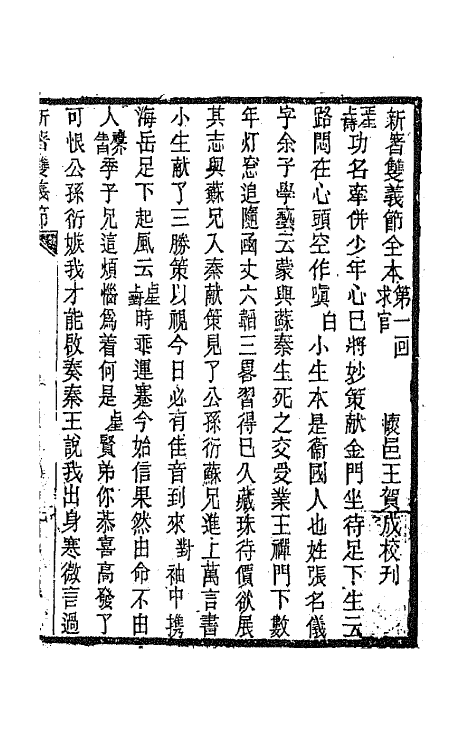 新著雙義節全本 第一回 求官 懷邑王賀成校刊
生上詩 功名牽併少年心已將妙策献金門坐待足下生云
路悶在心頭空作嗔 白 小生本是衛國人也姓張名儀
字余子學藝云蒙與蘇秦生死之交受業王禪門下數
年灯窓追隨函丈六韜三畧習得已久藏珠待價欲展
其志與蘇兄入秦献策見了公孫衍蘇兄進上萬言書
小生献了三勝策以視今日必有佳音到來 對 袖中携
海岳足下起風云 生上對 時乖運蹇今始信果然由命不由
人 季子兄這煩惱為着何是 生 賢弟你恭喜高發了
可恨公孫衍嫉我才能啟奏秦王說我出身寒微言過
新著雙義節